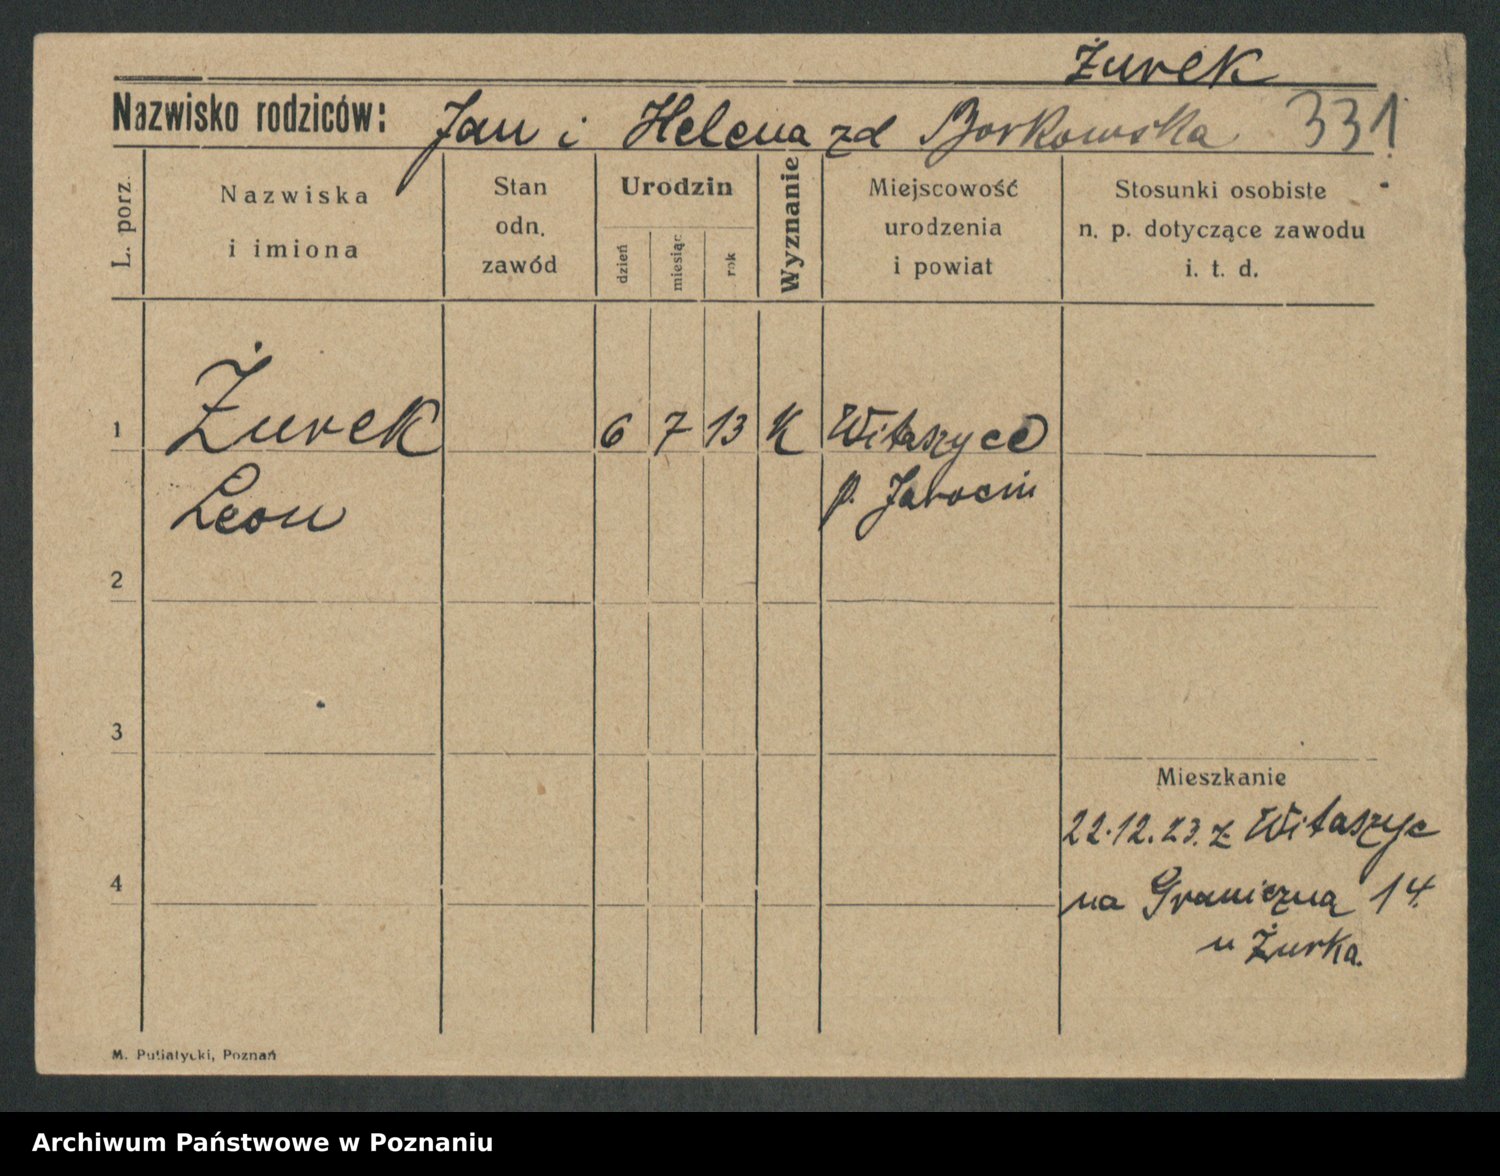 Żurek
Nazwisko rodziców: Jan i Helena zd Borkowska 331
L. porz.
Nazwiska
i imiona
Stan
odn.
zawód
Urodzin
dzień
miesiąc
rok
Wyznanie
Miejscowość
urodzenia
i powiat
Stosunki osobiste
n. p. dotyczące zawodu
i. t. d.
1 Żurek 6 7 13 K Witaszyce
Leon p. Jarocin
2
3
Mieszkanie
22.12.23. z Witaszyc
4
na Graniczną 14.
u Żurka.
M. Putiatycki, Poznań
Archiwum Państwowe w Poznaniu